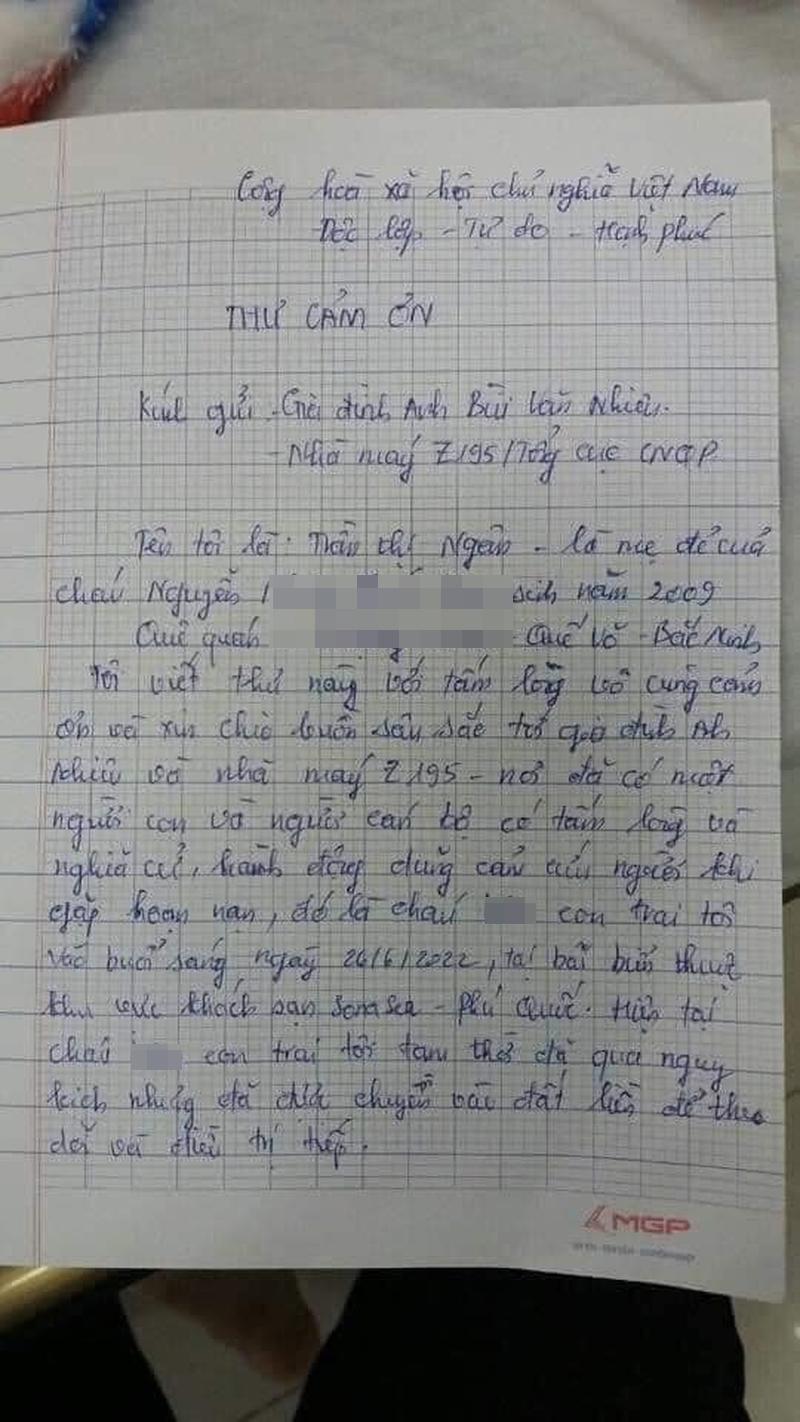 Cộng hoà xã hội chủ nghĩa Việt Nam
Độc lập - Tự do - Hạnh phúc
THƯ CẢM ƠN
Kính gửi - Gia đình Anh Bùi Văn Nhiên.
- Nhà máy Z195/Tổng cục CNQP
Tên tôi là: Trần Thị Ngân - là mẹ đẻ của
cháu Nguyễn sinh năm 2009
Quê quán - Quế Võ - Bắc Ninh
Tôi viết thư này với tấm lòng vô cùng cảm
ơn và xin chia buồn sâu sắc tới gia đình Anh
Nhiên và nhà máy Z195 - nơi đã có một
người con và người cán bộ có tấm lòng và
nghĩa cử, hành động dũng cảm cứu người khi
gặp hoạn nạn, đó là cháu con trai tôi
vào buổi sáng ngày 26/6/2022, tại bãi biển thuộc
khu vực khách sạn Sonasea - Phú Quốc. Hiện tại
cháu con trai tôi tạm thời đã qua nguy
kịch nhưng đã được chuyển vào đất liền để theo
dõi và điều trị tiếp.
MGP